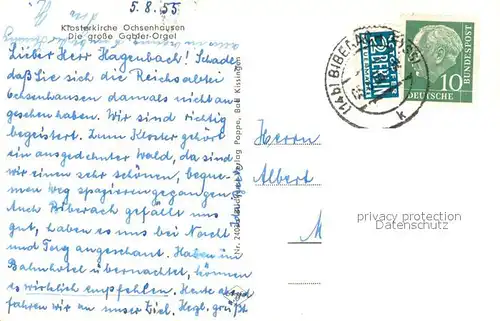 5.8.55
Klosterkirche Ochsenhausen
Die große Gabler-Orgel
Lieber Herr Hagenbach! Schade,
daß Sie sich die Reichsabtei
Ochsenhausen damals nicht an-
gesehen haben. Wir sind richtig
begeistert. Zum Kloster gehört
ein ausgedehnter Wald, da sind
wir einen sehr schönen, beque-
men Weg spazierengegangen.
Auch Biberach gefällt uns
gut, haben es uns bei Nacht
und Tag angeschaut. Haben im
Bahnhotel übernachtet, können
es wirklich empfehlen. Heute
fahren wir an unser Ziel. Herzl. grüßt
Verlag Poppe, Bad Kissingen
(14b) BIBERACH
k
NOTOPFER
2 BERLIN
STEUERMARKE
10
DEUTSCHE
BUNDESPOST
Herrn
Albert
M
privacy protection
Datenschutz